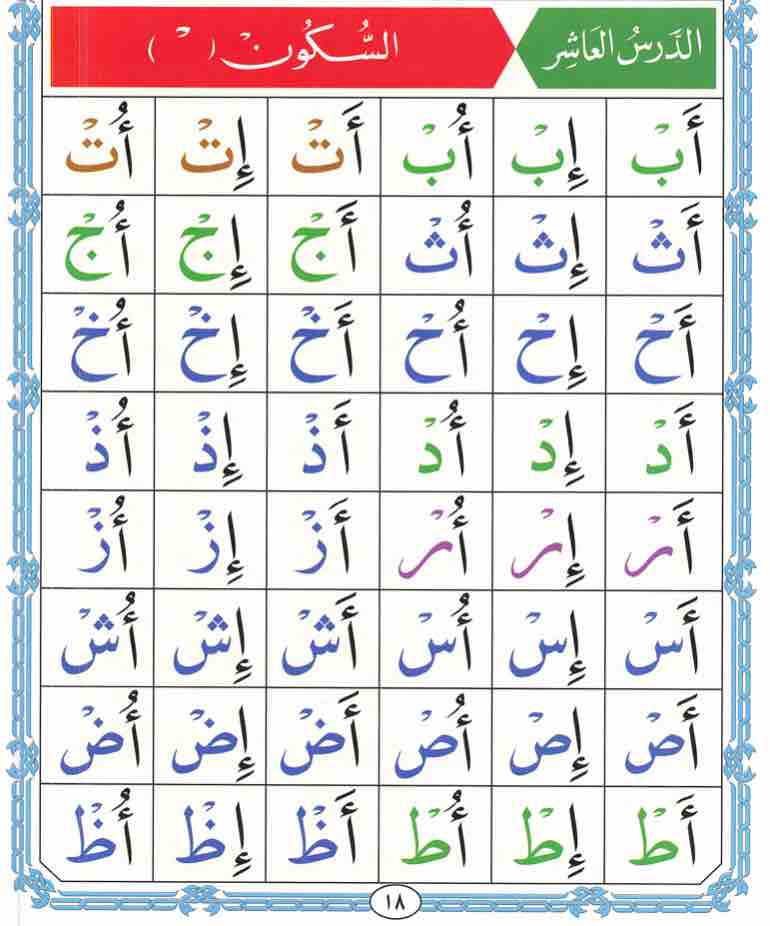 الدَّرسُ العَاشِر السُّكُونْ ( ْ )
أَبْ إِبْ أُبْ أَتْ إِتْ أُتْ
أَثْ إِثْ أُثْ أَجْ إِجْ أُجْ
أَحْ إِحْ أُحْ أَخْ إِخْ أُخْ
أَدْ إِدْ أُدْ أَذْ إِذْ أُذْ
أَرْ إِرْ أُرْ أَزْ إِزْ أُزْ
أَسْ إِسْ أُسْ أَشْ إِشْ أُشْ
أَصْ إِصْ أُصْ أَضْ إِضْ أُضْ
أَطْ إِطْ أُطْ أَظْ إِظْ أُظْ
١٨